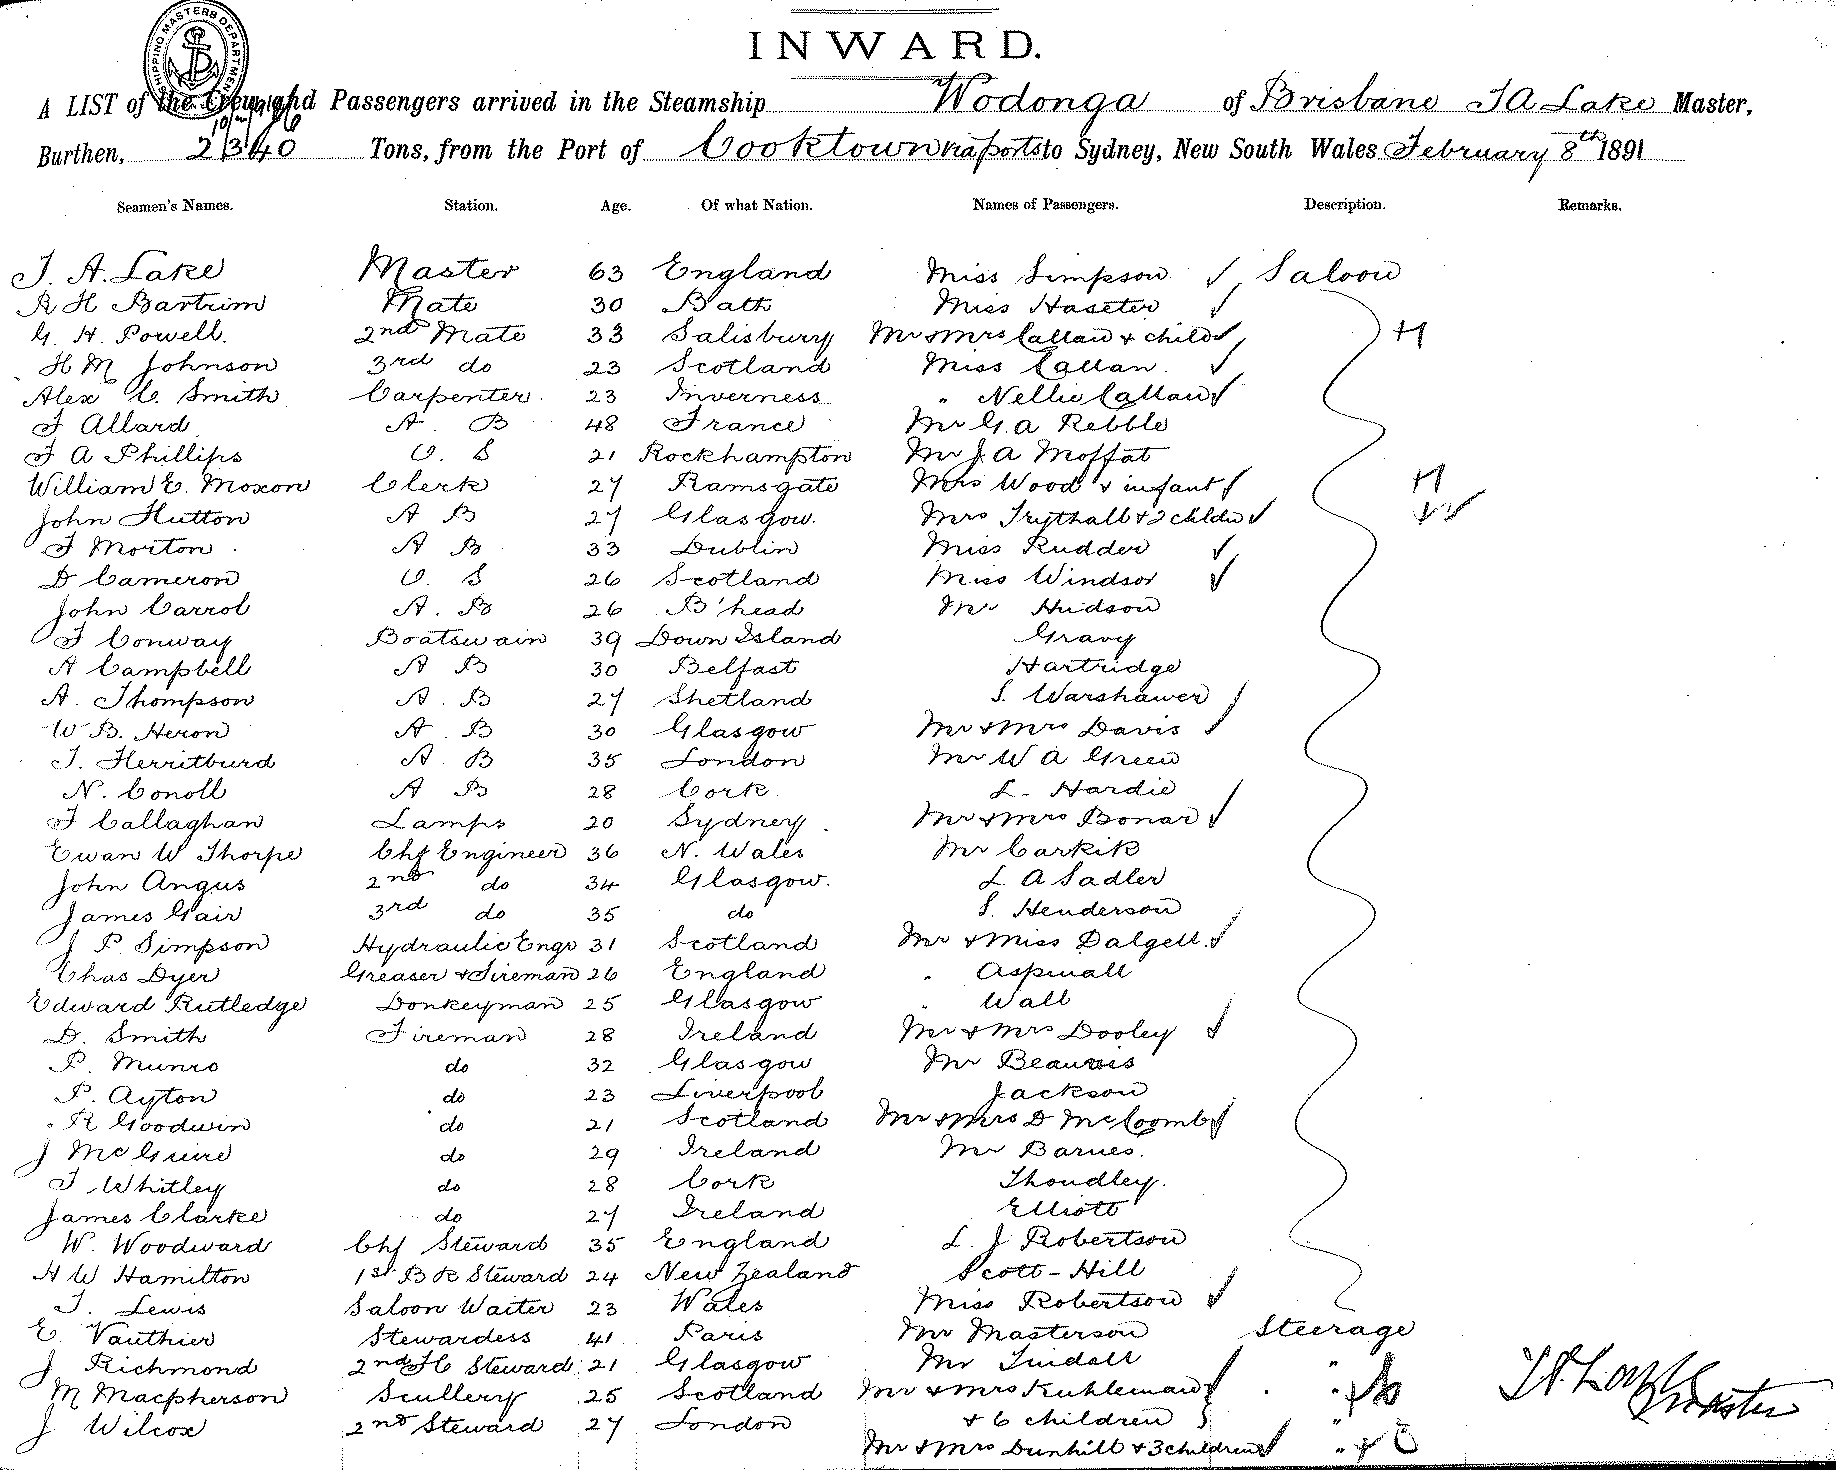 SHIPPING MASTERS DEPARTMENT
INWARD.
A LIST of the Crew and Passengers arrived in the Steamship Wodonga of Brisbane J A Lake Master,
Burthen, 2340 Tons, from the Port of Cooktown via ports to Sydney, New South Wales February 8th 1891
Seamen's Names. Station. Age. Of what Nation. Names of Passengers. Description. Remarks.
J. A. Lake Master 63 England Miss Simpson Saloon
R H Bartrim Mate 30 Bath Miss Haseter
G. H. Powell. 2nd Mate 33 Salisbury Mr & Mrs Callan & child
H M Johnson 3rd do 23 Scotland Miss Callan.
Alex C. Smith Carpenter 23 Inverness " Nellie Callan
F Allard A B 48 France Mr G. A Rebble
F A Phillips O. S 21 Rockhampton Mr J. A Moffat
William E. Moxon Clerk 27 Ramsgate Mrs Wood & infant
John Hutton A B 27 Glasgow. Mrs Trythall & 2 childn
F Morton A B 33 Dublin Miss Rudder
D Cameron O. S 26 Scotland Miss Windsor
John Carrol A. B 26 B'head Mr Hudson
F Conway Boatswain 39 Down Island Gravy
A Campbell A B 30 Belfast Hartridge
A. Thompson A. B 27 Shetland S. Warshawer
W B. Heron A. B 30 Glasgow Mr & Mrs Davis
J. Herritburd A. B 35 London Mr W A Green
N. Conoll A B 28 Cork L. Hardie
F Callaghan Lamps 20 Sydney Mr & Mrs Bonar
Ewan W Thorpe Chf Engineer 36 N. Wales Mr Carkik
John Angus 2nd do 34 Glasgow. L A Sadler
James Gair 3rd do 35 do S. Henderson
J P Simpson Hydraulic Engr 31 Scotland Mr & Miss Dalgell
Chas Dyer Greaser & Fireman 26 England " Aspinall
Edward Rutledge Donkeyman 25 Glasgow " Wall
D. Smith Fireman 28 Ireland Mr & Mrs Dooley
P. Munro do 32 Glasgow Mr Beauvois
P. Ayton do 23 Liverpool Jackson
R Goodwin do 21 Scotland Mr & Mrs D McCoomb
J McGuire do 29 Ireland Mr Barnes.
T Whitley do 28 Cork Thoudley.
James Clarke do 27 Ireland Elliott
W. Woodward Chf Steward 35 England L. J Robertson
H W Hamilton 1st B R Steward 24 New Zealand Scott-Hill
T. Lewis Saloon Waiter 23 Wales Miss Robertson
E. Vauthier Stewardess 41 Paris Mr Masterson Steerage
J Richmond 2nd H Steward 21 Glasgow Mr Tindall "
M Macpherson Scullery 25 Scotland Mr & Mrs Kuhleman "
J Wilcox 2nd Steward 27 London & 6 children "
Mr & Mrs Dunhill & 3 children "
J A Lake Master